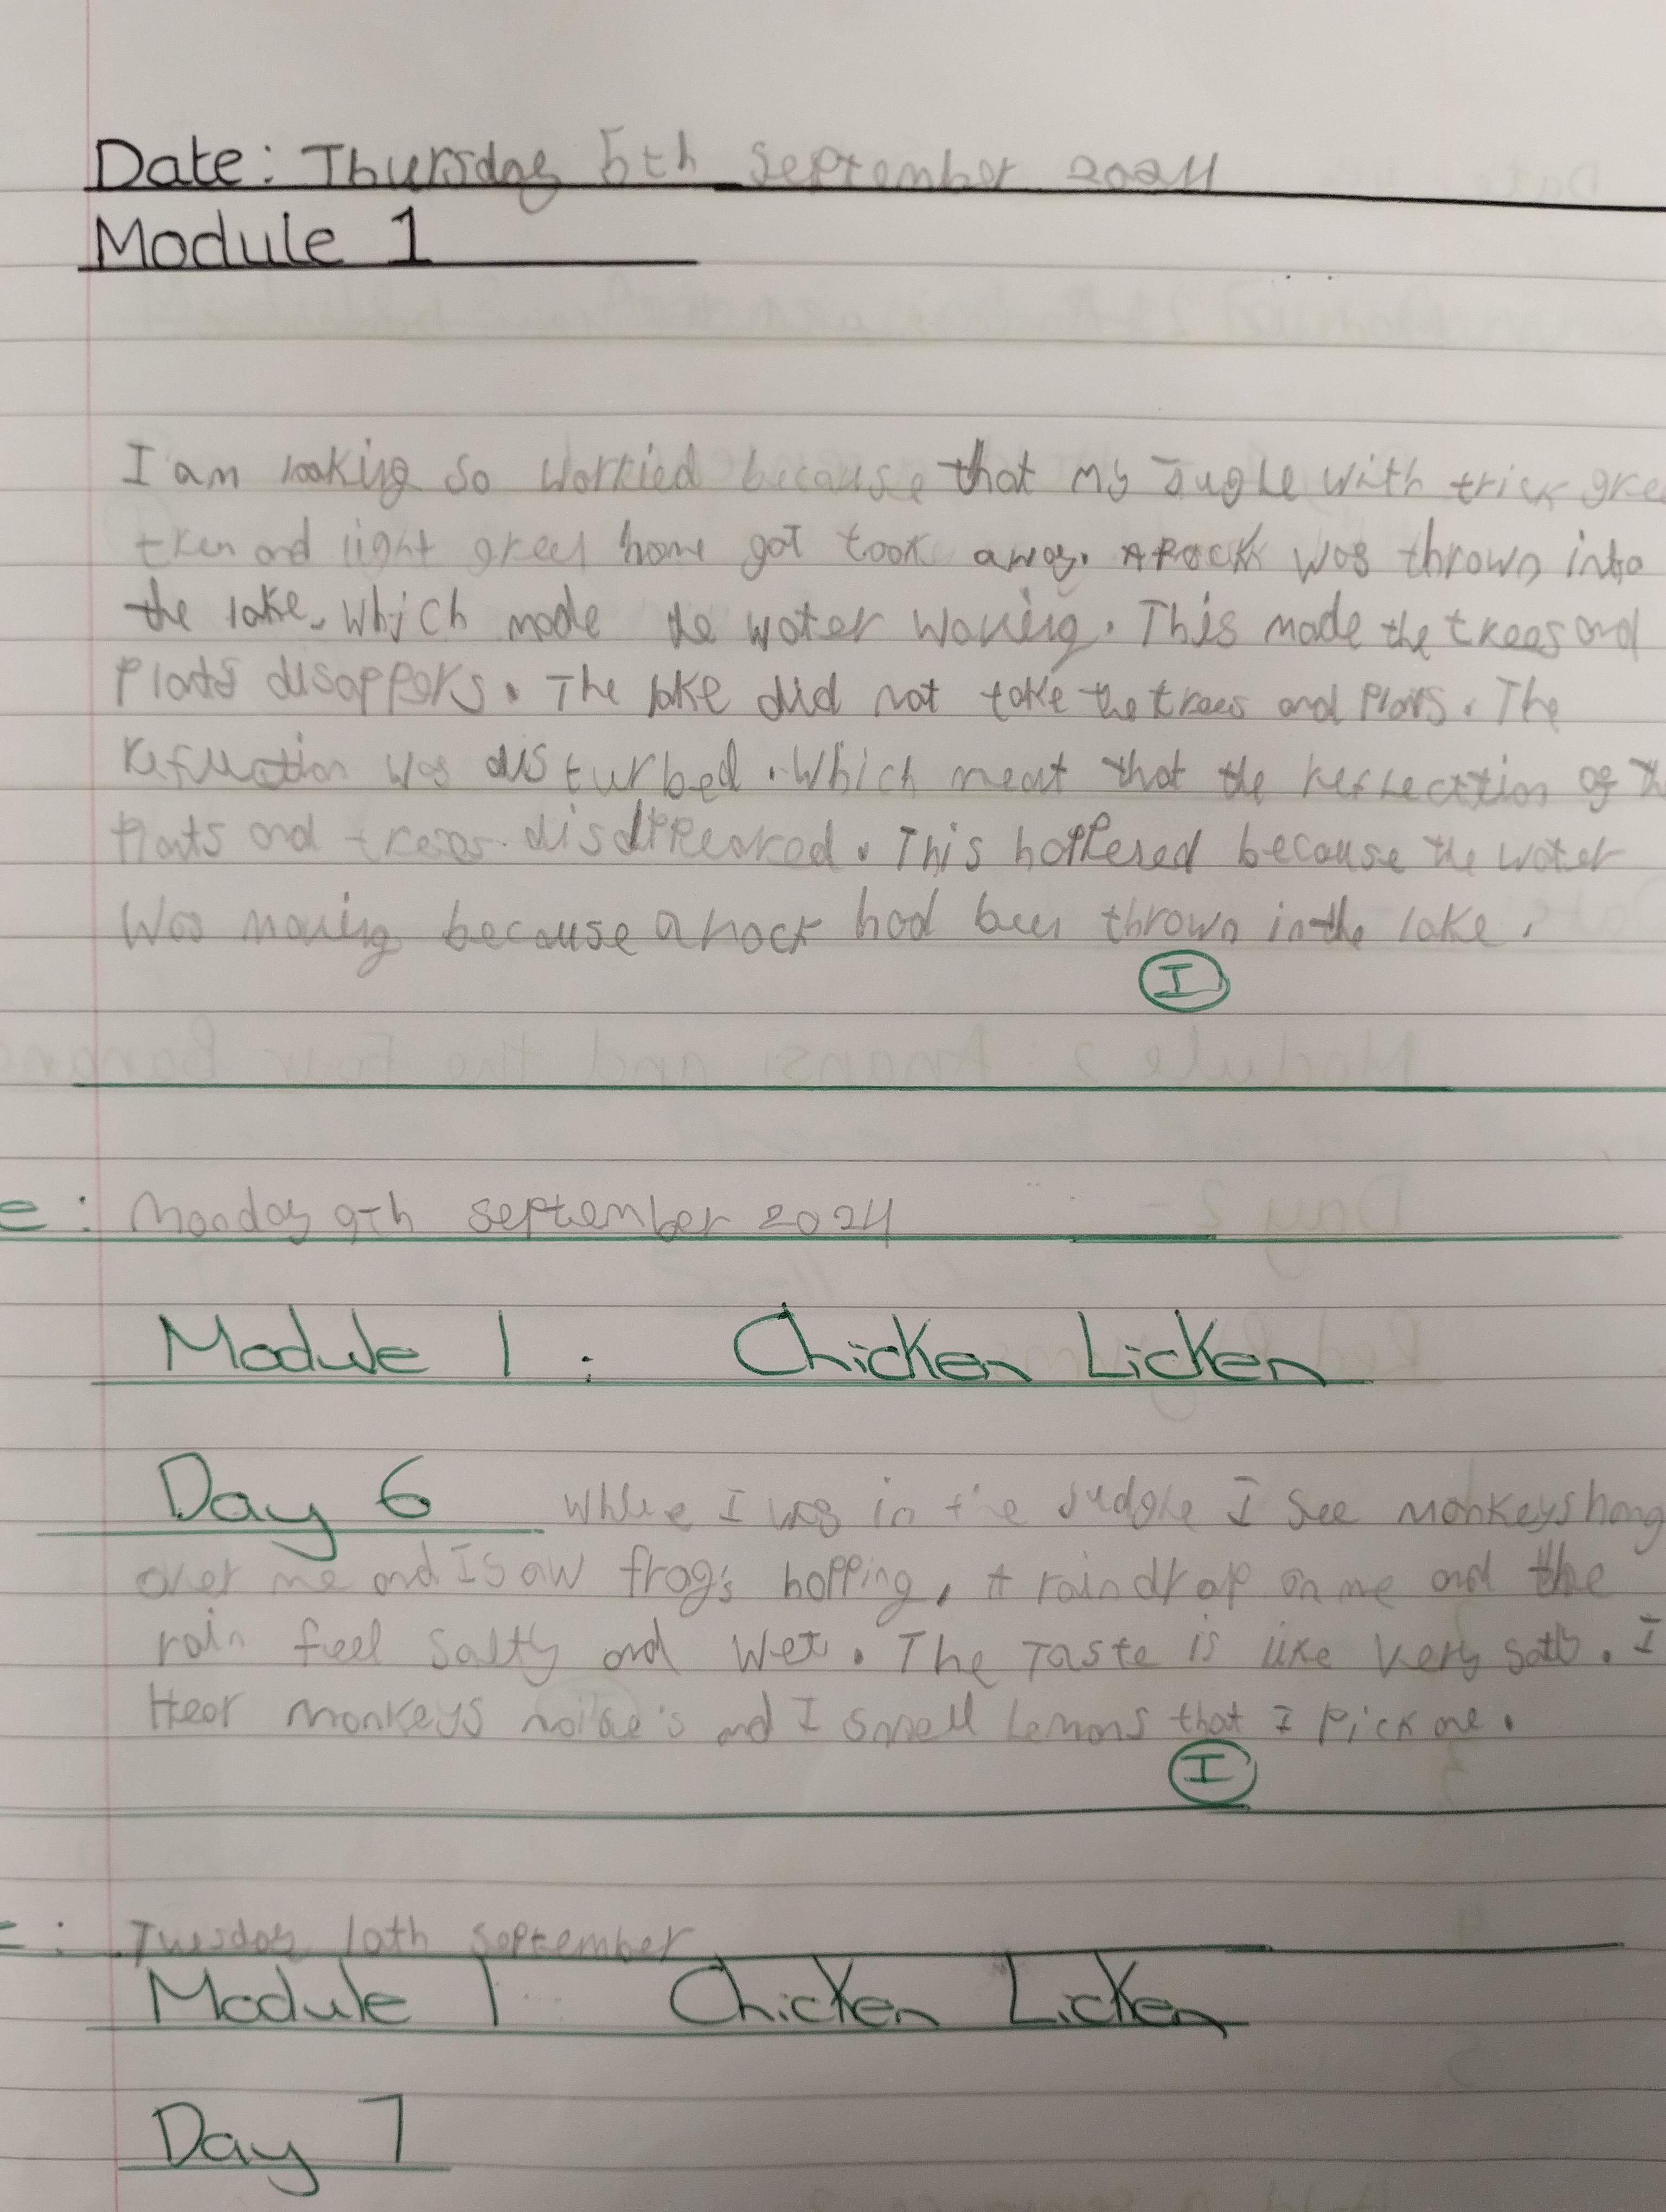 Date: Thursday 5th September 2024
Module 1
I am looking so worried because that my Jugle with trick gre
tren and light green home got took away. A Rock was thrown into
the lake. which made the water waving. This made the trees and
Plats disappers. The lake did not take the trees and Plats. The
was disturbed. which meat that the reflecation of th
Plats and trees disappeared. This hoppered because the water
was moving because a rock had been thrown in the lake.
I
e: Monday 9th September 2024
Module 1: Chicken Licken
Day 6 While I was in the Judgle I see monkeys hang
over me and I saw frog's hopping, A raindrop on me and the
rain feel Salty and Wet. The Taste is like very salty. I
Hear monkeys noise's and I smell Lemons that I Pick one.
I
e: Tuesday 10th September
Module 1: Chicken Licken
Day 7